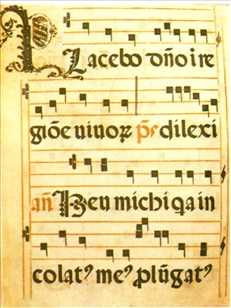 Placebo dño ire
giõe uiuoꝝ p̃s dilexi
añ Heu michi q̃a in
colatꝰ meꝰ plũgatꝰ